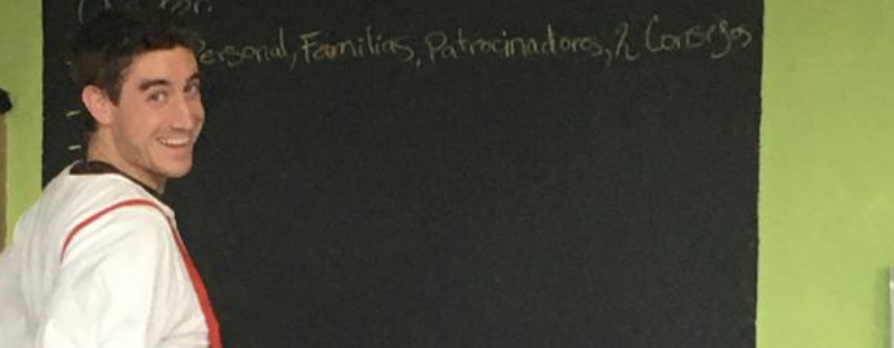 Personal, Familias, Patrocinadores, y Consejos